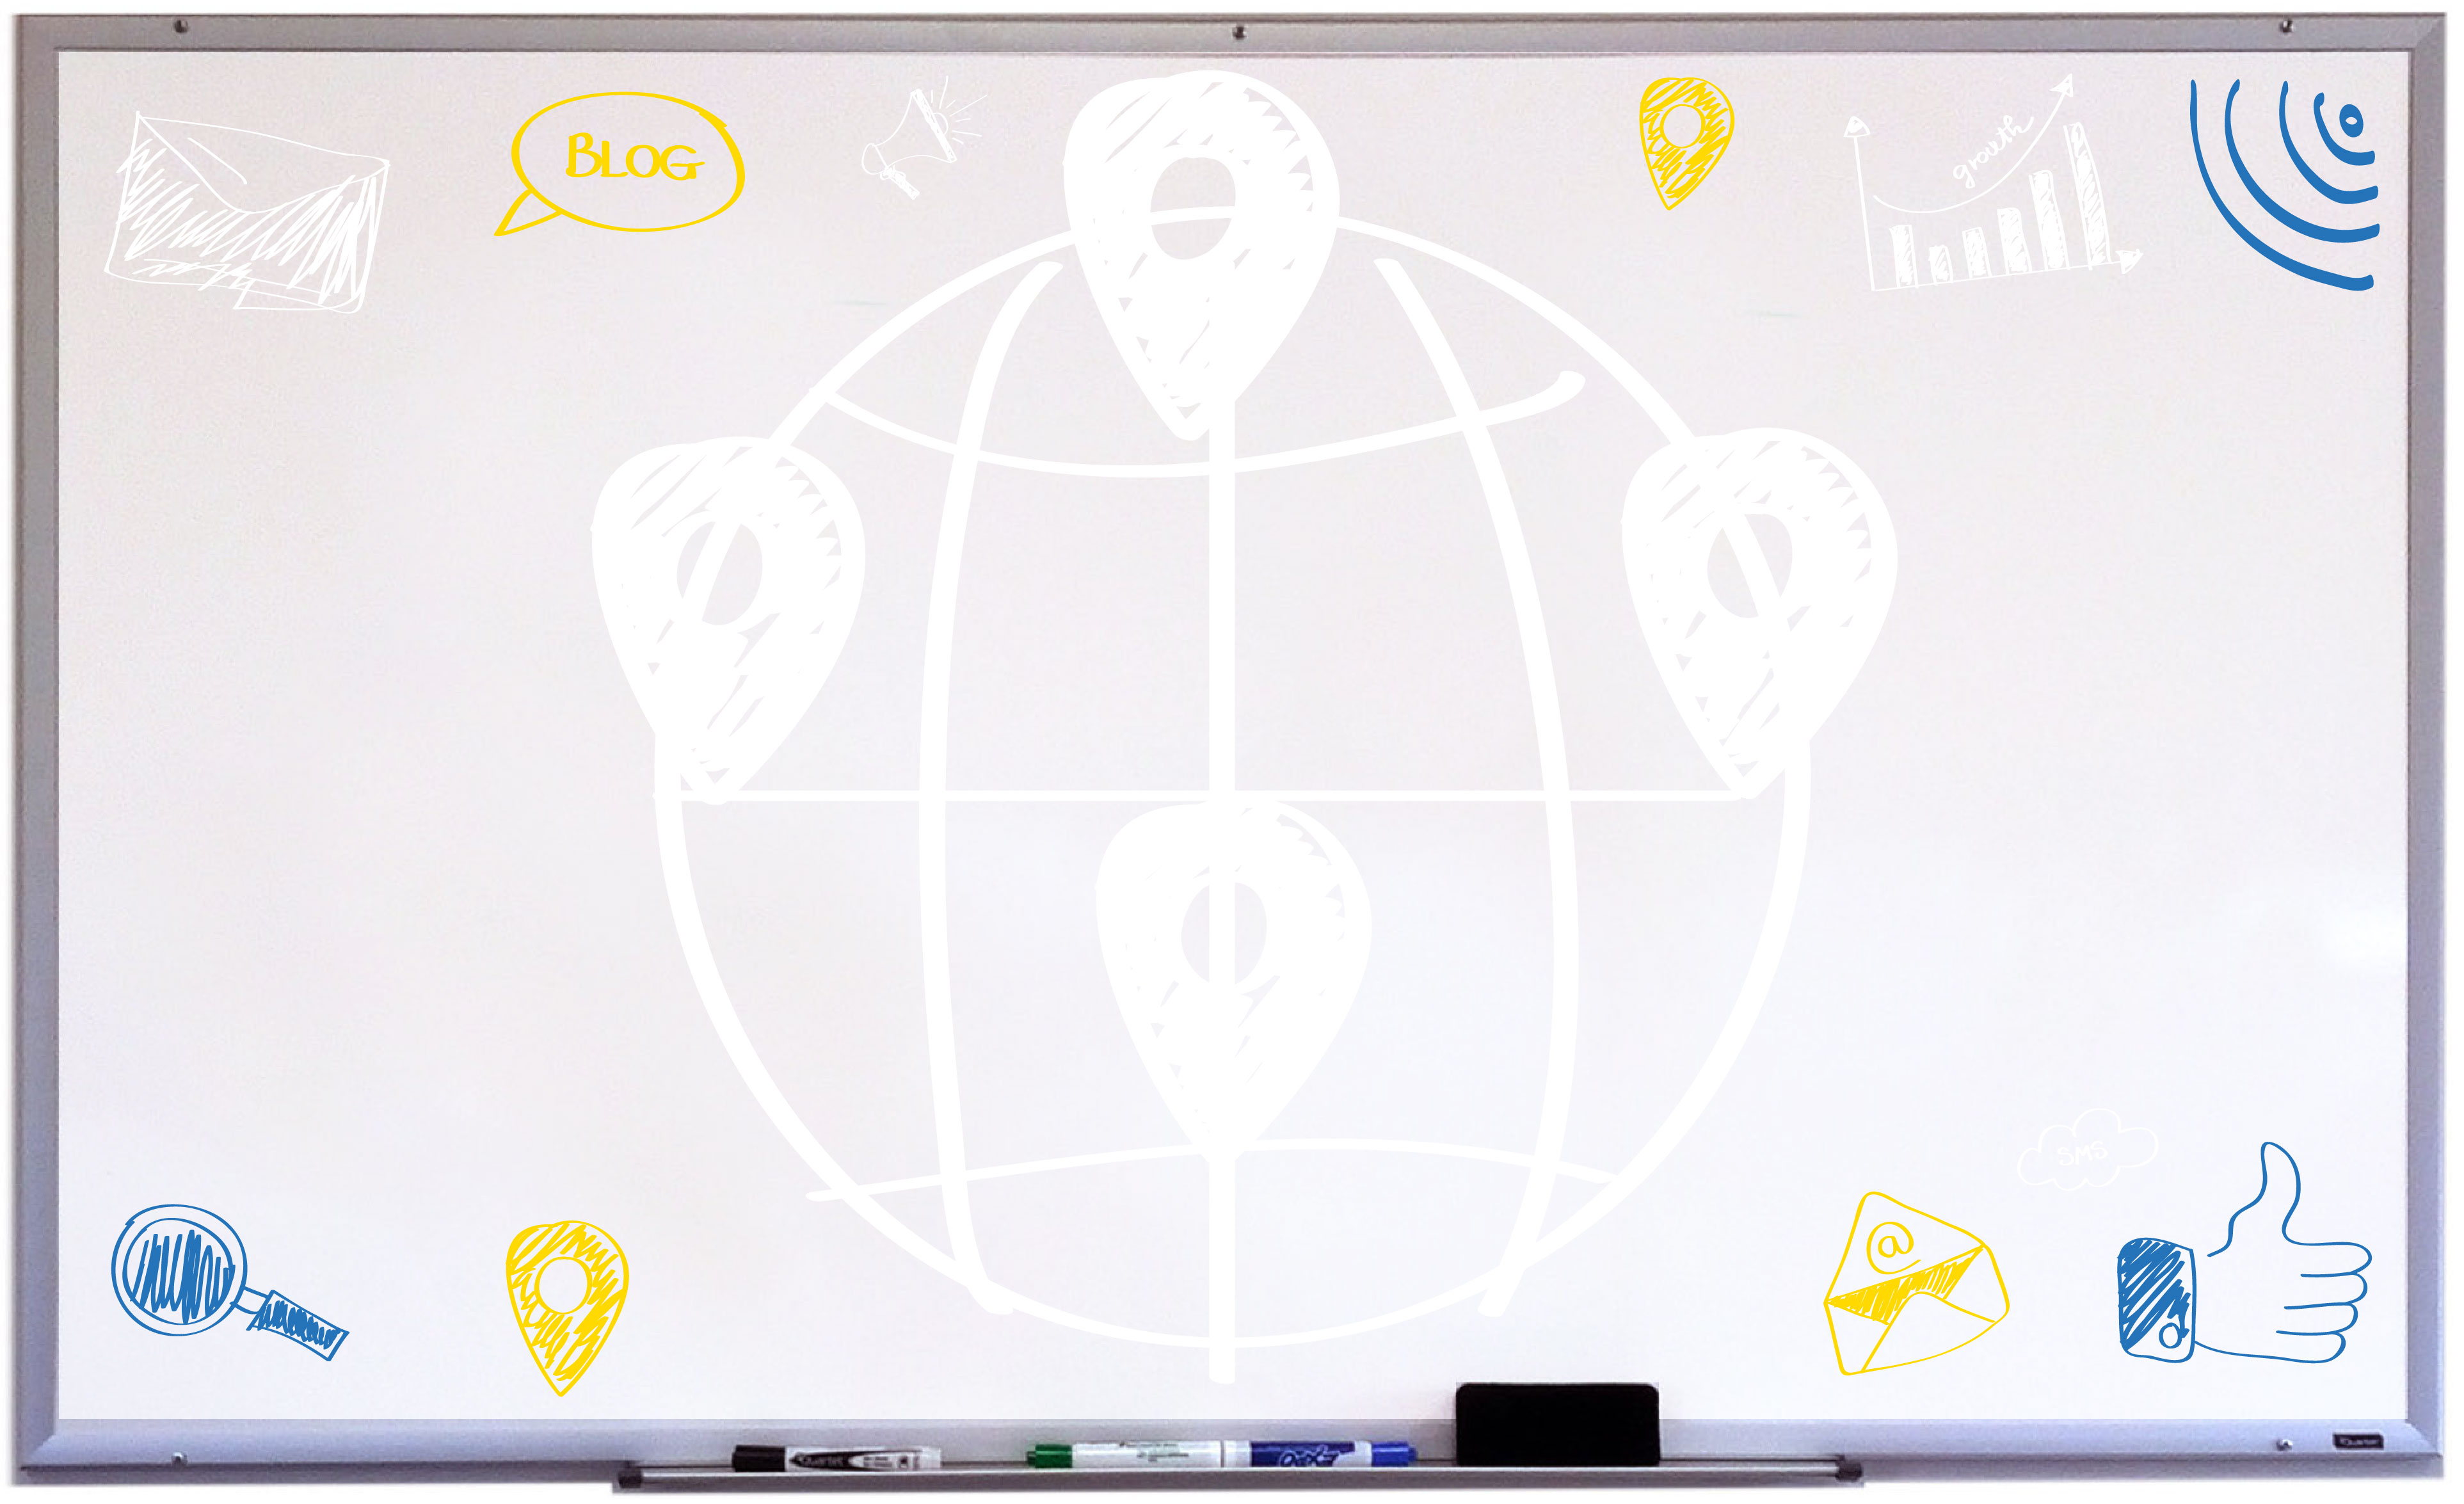 BLOG
growth
SMS
@
Quartet
EXPO
Quartet